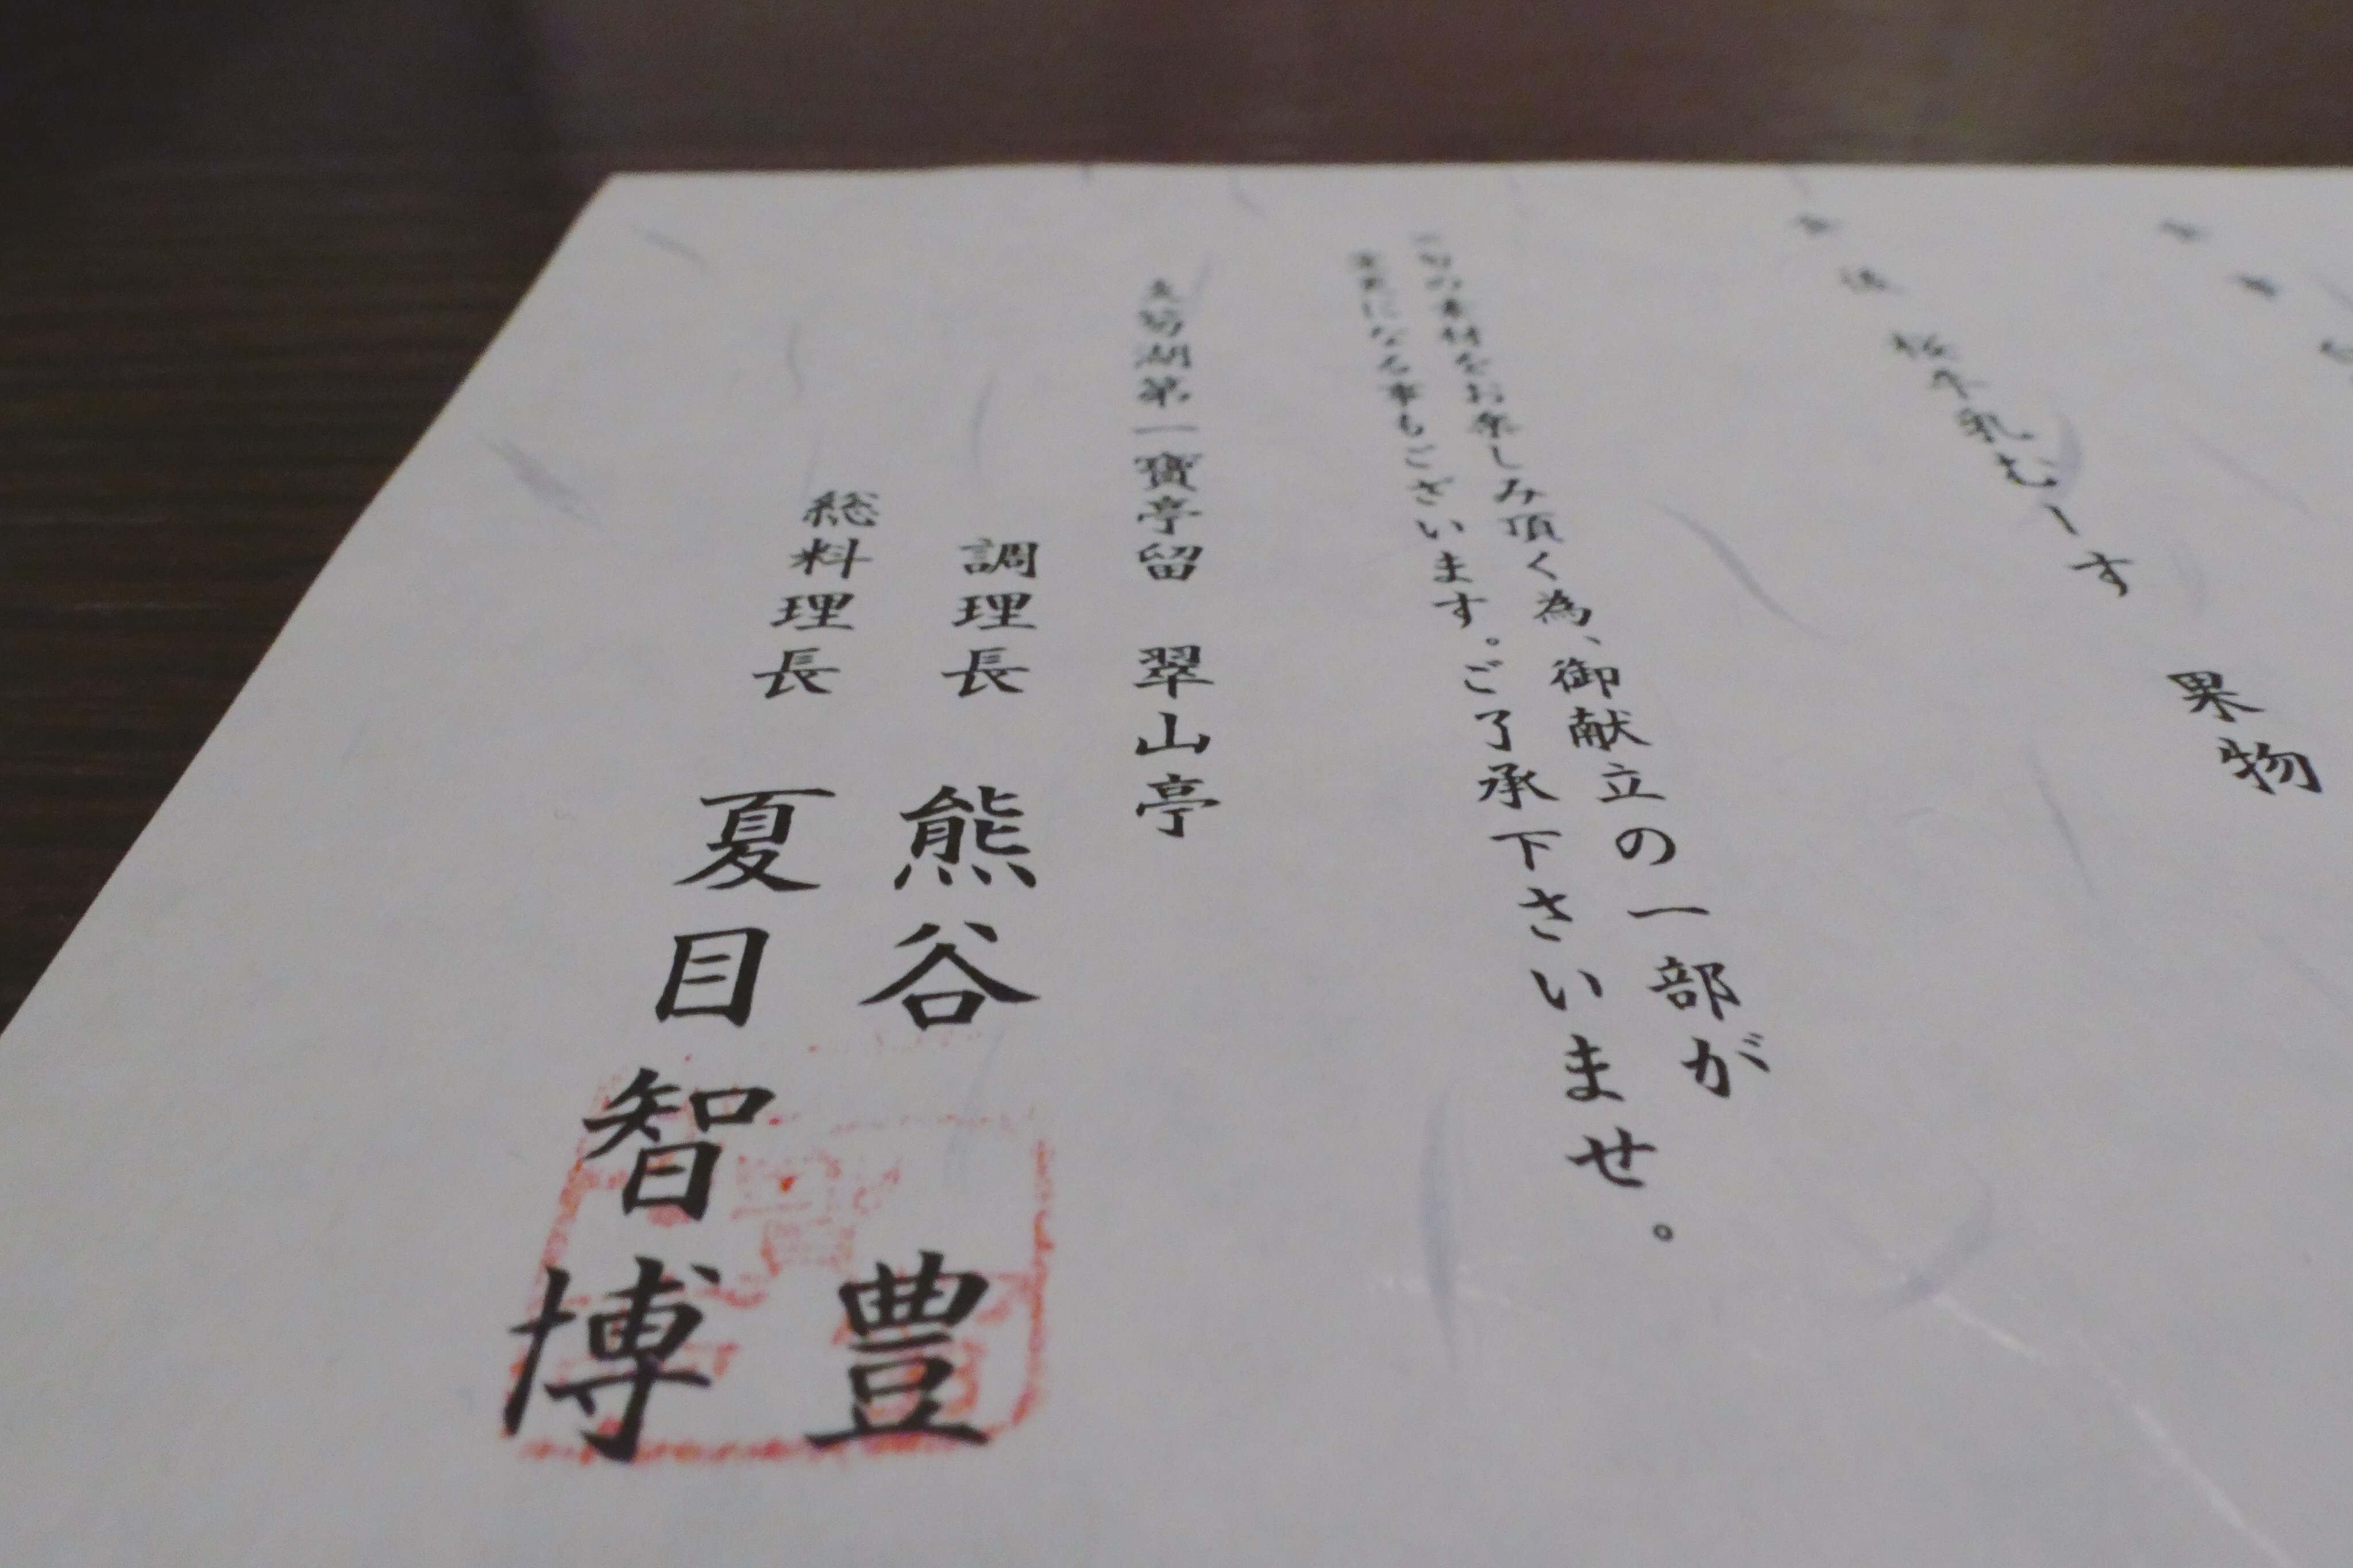 牛乳むーす 果物
の素材をお楽しみ頂く為、御献立の一部が
変更になる事もございます。ご了承下さいませ。
支笏湖第一寶亭留 翠山亭
調理長 熊谷 豊
総料理長 夏目智博